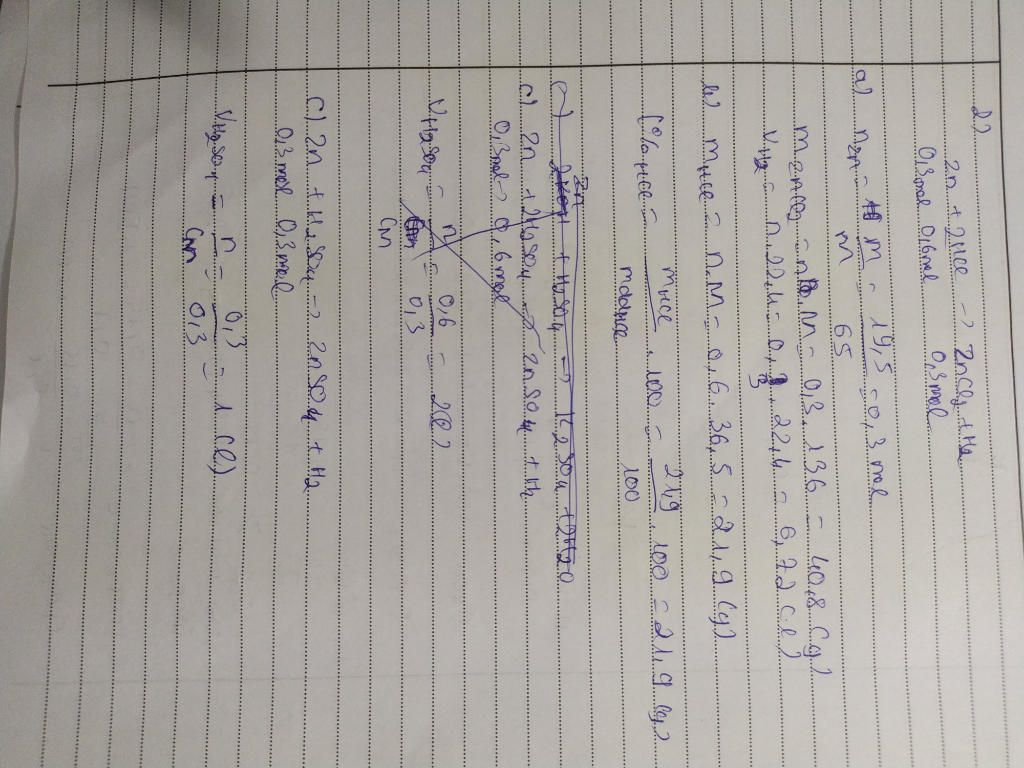 2)
Zn + 2HCl -> ZnCl2 + H2
0,3mol 0,6mol 0,3mol
a) nZn = m/M = 19,5/65 = 0,3 mol
mZnCl2 = n.M = 0,3.136 = 40,8 (g)
VH2 = n.22,4 = 0,3.22,4 = 6,72 (l)
b) mHCl = n.M = 0,6.36,5 = 21,9 (g)
C%HCl = mHCl/mddHCl .100 = 21,9/100 .100 = 21,9 (%)
Zn + H2SO4 -> K2SO4 + 2H2O
c) Zn + 2H2SO4 -> ZnSO4 + H2
0,3mol -> 0,6mol
VH2SO4 = n/CM = 0,6/0,3 = 2(l)
c) Zn + H2SO4 -> ZnSO4 + H2
0,3mol 0,3mol
VH2SO4 = n/CM = 0,3/0,3 = 1 (l)